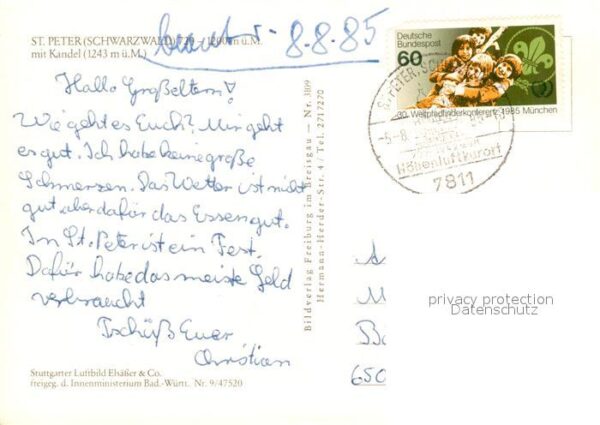 beantw. 8.8.85
ST. PETER (SCHWARZWALD) 720 - 1200 m ü.M.
mit Kandel (1243 m ü.M.)
Hallo Großeltern!
Wie geht es Euch? Mir geht
es gut. Ich habe keine große
Schmerzen. Das Wetter ist nicht
gut aber dafür das Essen gut.
In St. Peter ist ein Fest.
Dafür habe das meiste Geld
verbraucht
Tschüß Euer
Christian
Stuttgarter Luftbild Elsäßer & Co.
freigeg. d. Innenministerium Bad.-Württ. Nr. 9/47520
Bildverlag Freiburg im Breisgau - Nr. 3809
Hermann-Herder-Str. 4 / Tel. 2717270
Deutsche
Bundespost
60
30. Weltpfadfinderkonferenz 1985 München
ST. PETER, SCH
-5.-8.
Höhenluftkurort
7811
A
M
Ba
650
privacy protection
Datenschutz